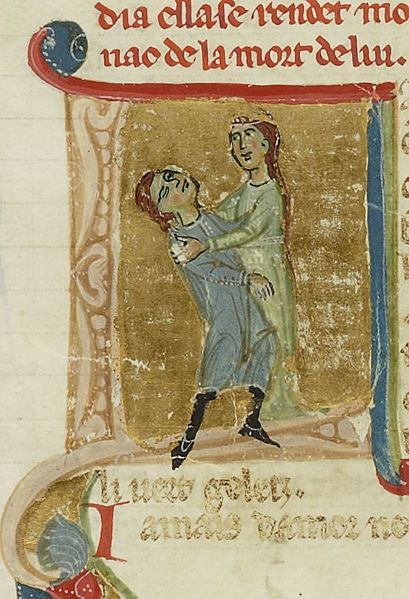 dia ellase rendet mo
nao de la mort de lui.
li uers geletz.
Iamais damor no